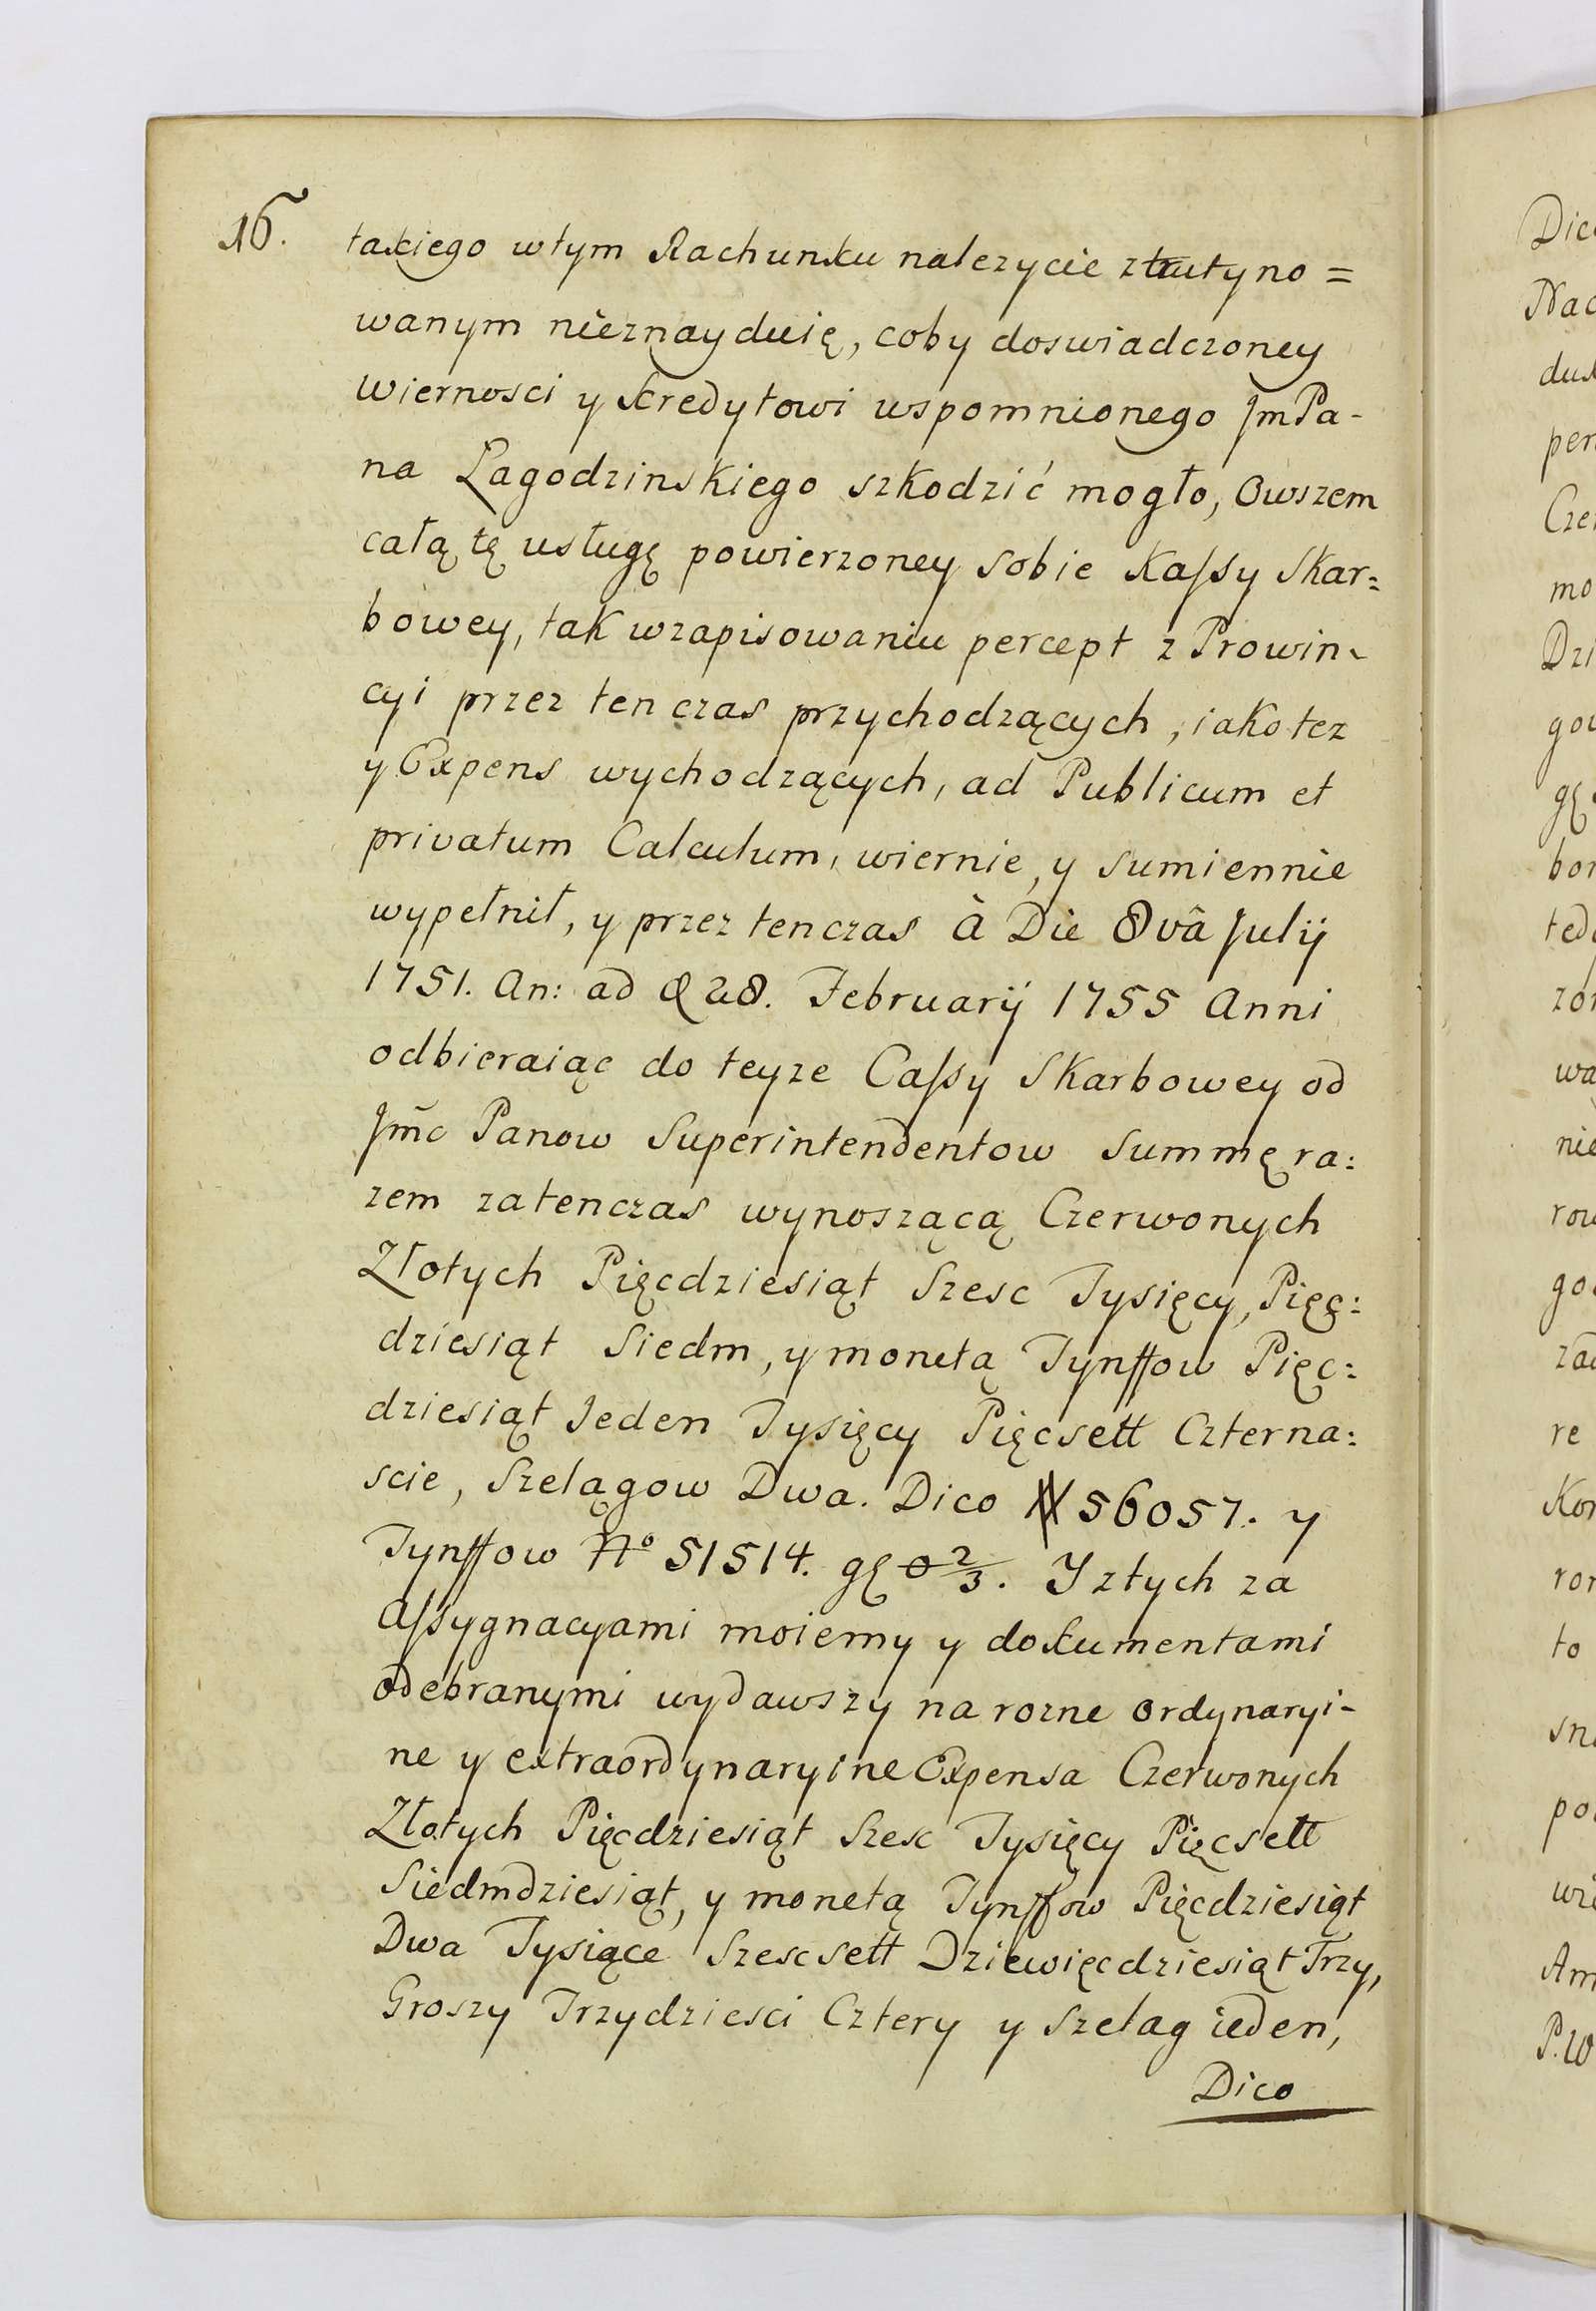 16.
takiego wtym Rachunku nalezycie ztrutyno =
wanym nieznayduię, coby doswiadczoney
wiernosci y kredytowi wspomnionego JmPa-
na Łagodzinskiego szkodzić mogło, Owszem
całą tę usługę powierzoney sobie Kassy Skar:
bowey, tak wzapisowaniu percept z Prowin-
cyi przez ten czas przychodzących, iako tez
y Expens wychodzących, ad Publicum et
privatum Calculum, wiernie, y sumiennie
wypełnił, y przez tenczas à Die 8vâ Julij
1751. An: ad 28. Februarij 1755 Anni
odbieraiąc do teyze Cassy Skarbowey od
Jm̃c Panow Superintendentow Summę ra:
zem zatenczas wynoszącą Czerwonych
Złotych Pięcdziesiąt Szesc Tysięcy, Pięc:
dziesiąt Siedm, y monetą Tynffow Pięc:
dziesiąt Jeden Tysięcy Pięcsett Czterna:
scie, Szelągow Dwa. Dico # 56057. y
Tynffow No 51514. gę 0 2/3. Y ztych za
assygnacyami moiemy y dokumentami
odebranymi wydawszy na rozne ordynaryi-
ne y extraordynaryine Expensa Czerwonych
Złotych Pięcdziesiąt Szesc Tysięcy Pięcsett
Siedmdziesiąt, y monetą Tynffow Pięcdziesiąt
Dwa Tysiące Szescsett Dziewięcdziesiąt Trzy,
Groszy Trzydziesci Cztery y Szelag ieden,
Dico